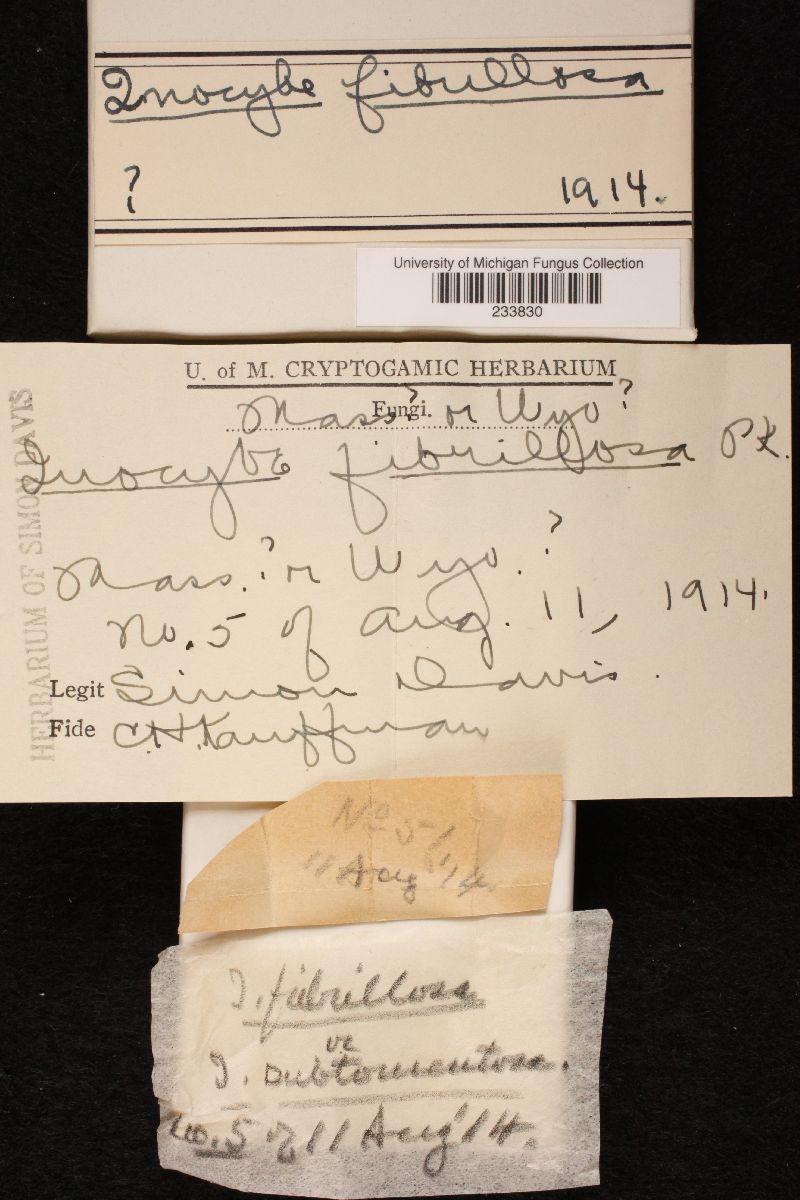 Inocybe fibrillosa
? 1914.
University of Michigan Fungus Collection
233830
U. of M. CRYPTOGAMIC HERBARIUM
Fungi.
Mass? or Wyo?
Inocybe fibrillosa Pk.
Mass.? or Wyo.?
No. 5 of Aug. 11, 1914.
Legit Simon Davis.
Fide C.H. Kauffman
HERBARIUM OF SIMON DAVIS
No 5
11 Aug '14.
I. fibrillosa
or
I. subtomentosa.
No. 5 of 11 Aug '14.